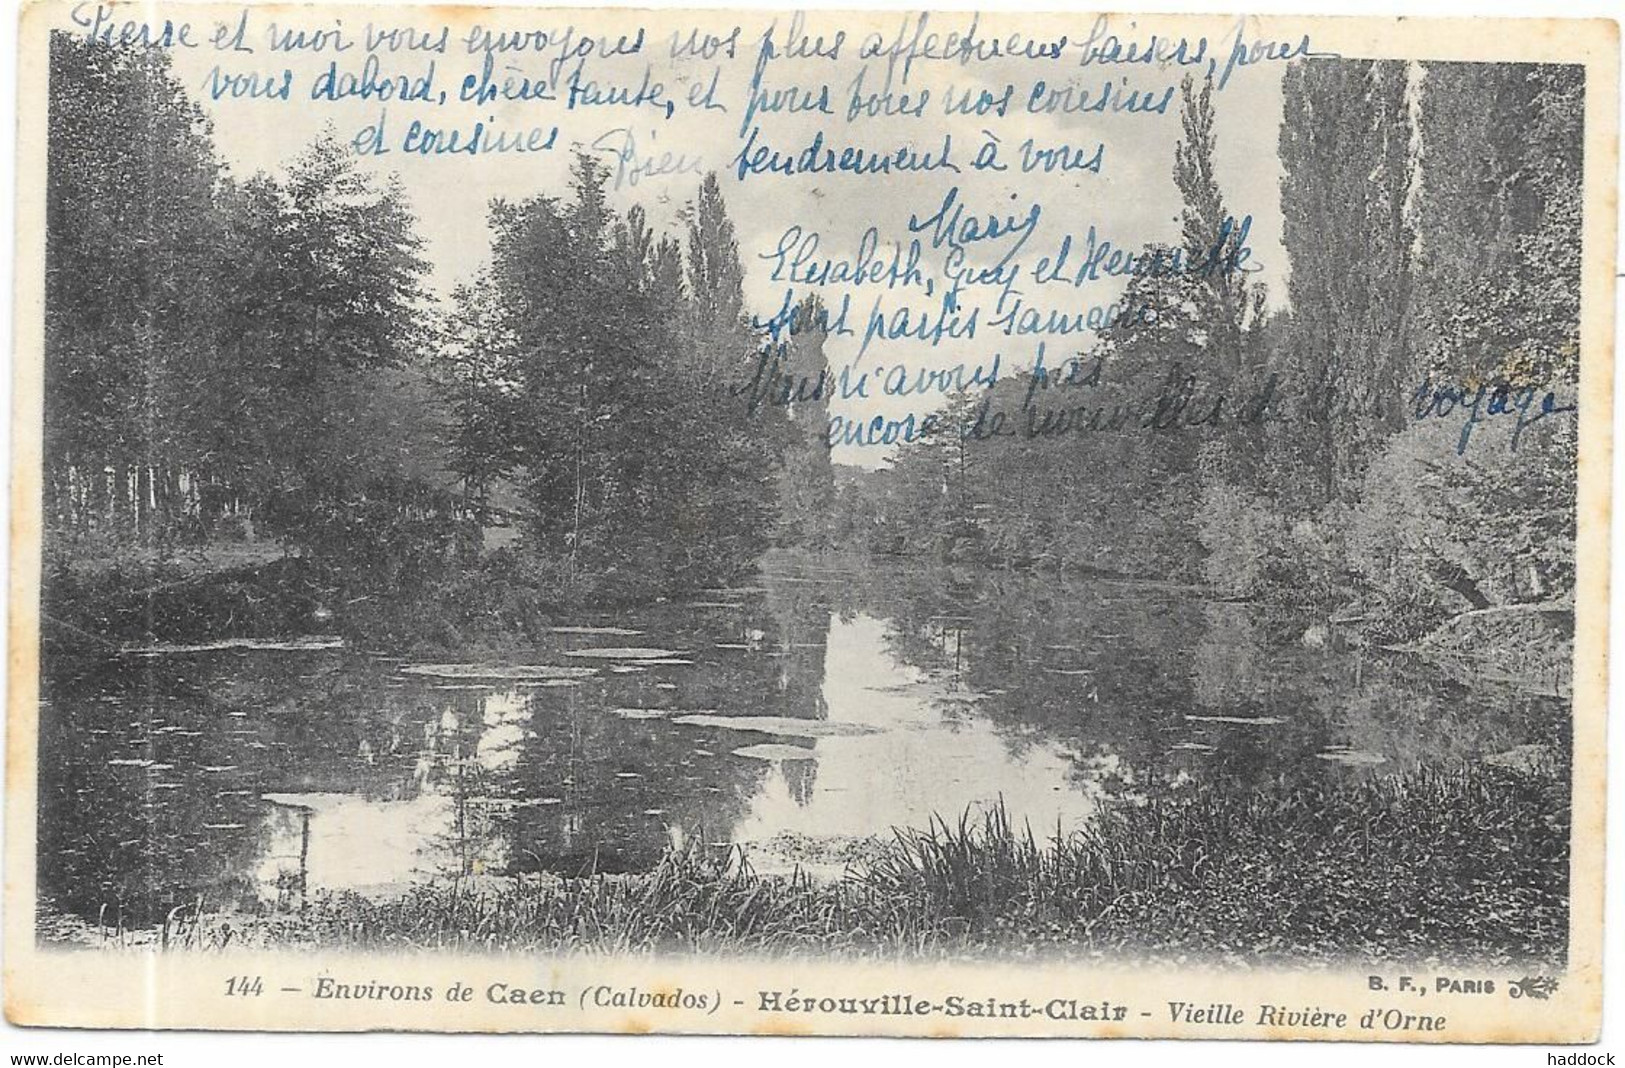 Pierre et moi vous envoyons nos plus affectueux baisers, pour
vous dabord, chère tante, et pour tous nos cousins
et cousines Bien tendrement à vous
Marie
Elisabeth, Guy et Henriette
sont partis samedi
Nous n'avons pas
encore de nouvelles de leur voyage
144 - Environs de Caen (Calvados) - Hérouville-Saint-Clair - Vieille Rivière d'Orne
B. F., PARIS
delcampe.net
haddock